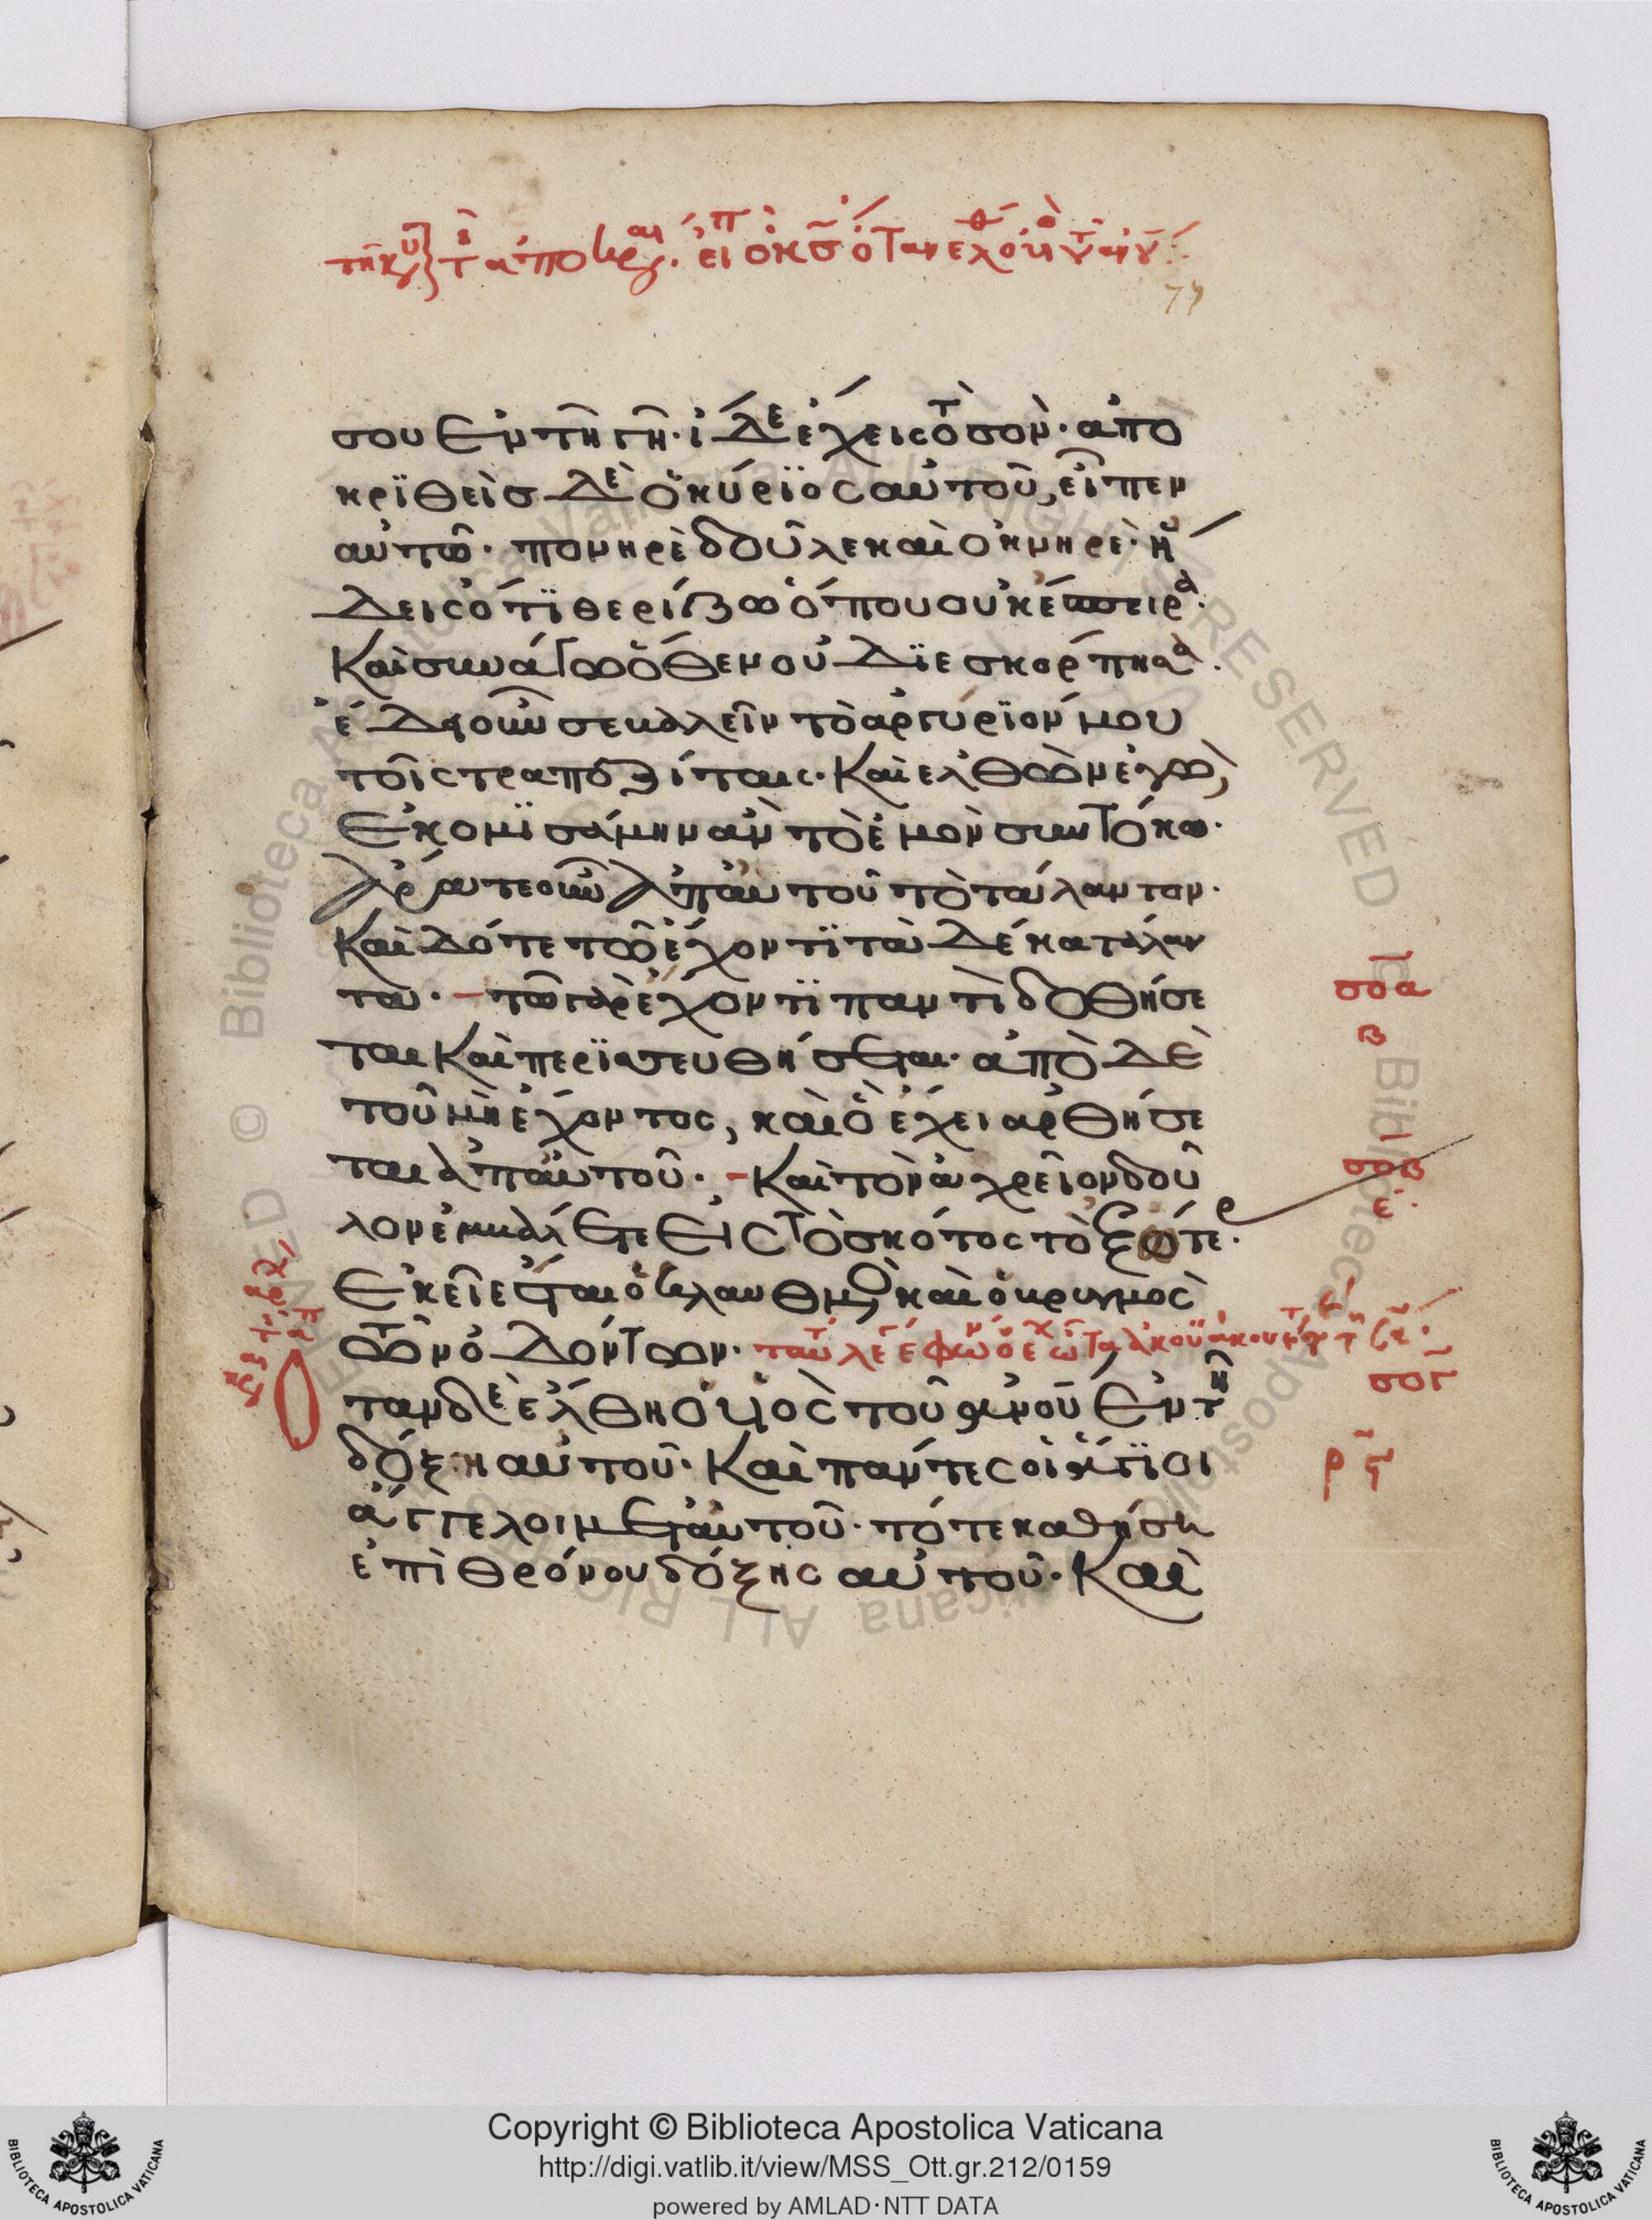 τῆ κυ τ ἀπόκρεω. εἶπ ὁ κς ὅταν ἔλθη ὁ υς τ ανου.
77
σου ἐν τῆ γῆ· ἴδε ἔχεις τὸ σὸν· ἀπο
κρϊθεὶσ δὲ ὁ κύρϊος αὐτοῦ, εἶπεν
αὐτῶ· πονηρὲ δοῦλε καὶ ὀκνηρὲ· ἤ
δεις ὅτϊ θερίζω ὅπου οὐκ ἔσπειρα·
Καὶ συνάγω ὅθεν οὐ δϊεσκόρπησα.
ἔδει οὖν σε βαλεῖν τὸ αργύρϊόν μου
τοῖς τραπεζίταις. Καὶ ελθὼν ἐγὼ,
Ἐκομϊσάμην ἂν τὸ ἐμὸν σὺν τόκω.
Ἄρατε οὖν ἀπ αὐτοῦ τὸ τάλαντον.
Καὶ δότε τῶ ἔχοντϊ τὰ δέκα τάλαν
τα. τῶ γὰρ ἔχοντϊ παντὶ δοθήσε
ται Καὶ περϊσσευθήσεται. ἀπὸ δὲ
τοῦ μὴ ἔχοντος, καὶ ὃ ἔχει αρθήσε
ται ἀπ αὐτοῦ. Καὶ τὸν ἀχρεῖον δοῦ
λον ἐκβάλετε Εἰς τὸ σκότος τὸ ἐξώτερ.
Ἐκεῖ ἔσται ὁ κλαυθμὸς καὶ ὁ βρυγμὸς
τῶν ὀδόντων.
ταν δὲ ἔλθη ὁ υἱὸς τοῦ ανου Ἐν τῆ
δόξη αὐτοῦ. Καὶ πάντες οἱ ἅγϊοι
ἄγγελοι μετ αὐτοῦ. τότε καθήσει
ἐπὶ θρόνου δόξης αὐτοῦ. Καὶ
σοα
β
σοβ
ε
σογ
Copyright © Biblioteca Apostolica Vaticana
http://digi.vatlib.it/view/MSS_Ott.gr.212/0159
powered by AMLAD·NTT DATA
BIBLIOTECA APOSTOLICA VATICANA
BIBLIOTECA APOSTOLICA VATICANA